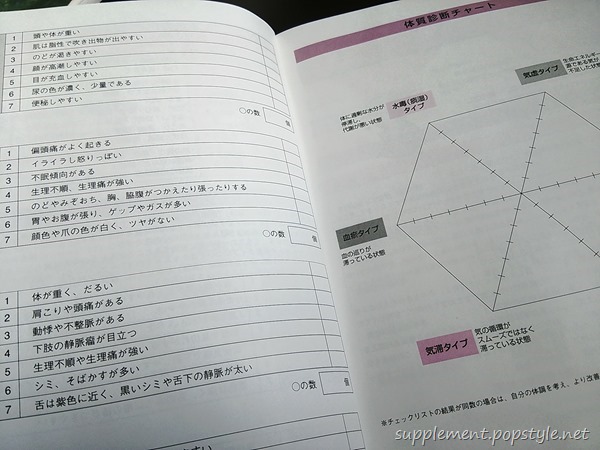 1 頭や体が重い
2 肌は脂性で吹き出物が出やすい
3 のどが渇きやすい
4 顔が高潮しやすい
5 目が充血しやすい
6 尿の色が濃く、少量である
7 便秘しやすい
○の数 個
1 偏頭痛がよく起きる
2 イライラし怒りっぽい
3 不眠傾向がある
4 生理不順、生理痛が強い
5 のどやみぞおち、胸、脇腹がつかえたり張ったりする
6 胃やお腹が張り、ゲップやガスが多い
7 顔色や爪の色が白く、ツヤがない
○の数 個
1 体が重く、だるい
2 肩こりや頭痛がある
3 動悸や不整脈がある
4 下肢の静脈瘤が目立つ
5 生理不順や生理痛が強い
6 シミ、そばかすが多い
7 舌は紫色に近く、黒いシミや舌下の静脈が太い
○の数 個
体質診断チャート
気虚タイプ
生命エネルギー
源である気が
不足した状態
体に過剰な水分が
停滞し、
代謝が悪い状態
水毒(痰湿)
タイプ
血瘀タイプ
血の巡りが
滞っている状態
気滞タイプ
気の循環が
スムーズではなく
滞っている状態
※チェックリストの結果が同数の場合は、自分の体調を考え、より改善
supplement.popstyle.net